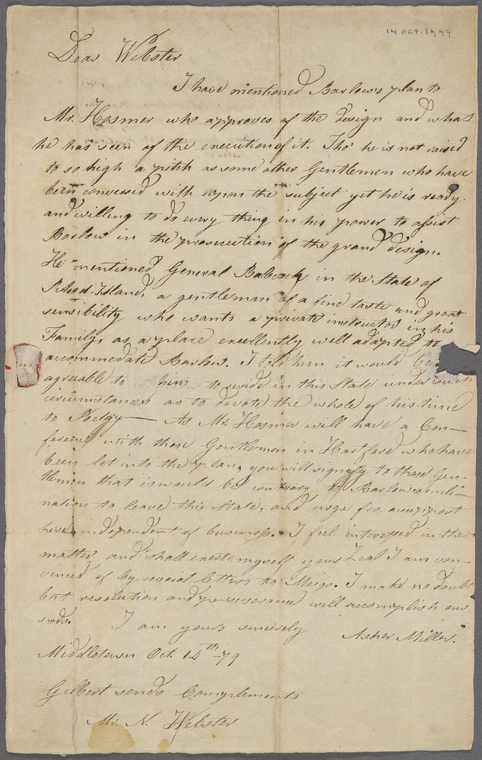 14 OCT. 1779
Dear Webster
I have mentioned Barlows plan to
Mr. Hosmer who approves of the design and what
he has seen of the execution of it. Tho' he is not raised
to so high a pitch as some other Gentlemen who have
been conversed with upon the subject yet he is ready
and willing to do every thing in his power to assist
Barlow in the prosecution of the grand design.
He mentioned General Babcock in the State of
Rhod-Island, a gentleman of a fine taste and great
sensibility who wants a private instructor in his
Family, as a place excellently well adapted to
accommodate Barlow. I told him it would be
agreable to him to reside in this State under such
circumstances as to devote the whole of his time
to Poetry — As Mr. Hosmer will have a Con-
ference with those Gentlemen in Hartford who have
been let into the plan, you will signify to those Gen-
tlemen that it would be contrary to Barlows incli-
nation to leave this State, and urge for a support
here independent of business. I feel interested in the
matter and shall exert myself your Zeal I am con-
vinced of by several letters to Meigs. I make no doubt
but resolution and perseverance will accomplish our
ends.
I am yours sincerely
Asher Miller.
Middletown Oct. 14th -79
Gilbert sends Complements
Mr. N. Webster